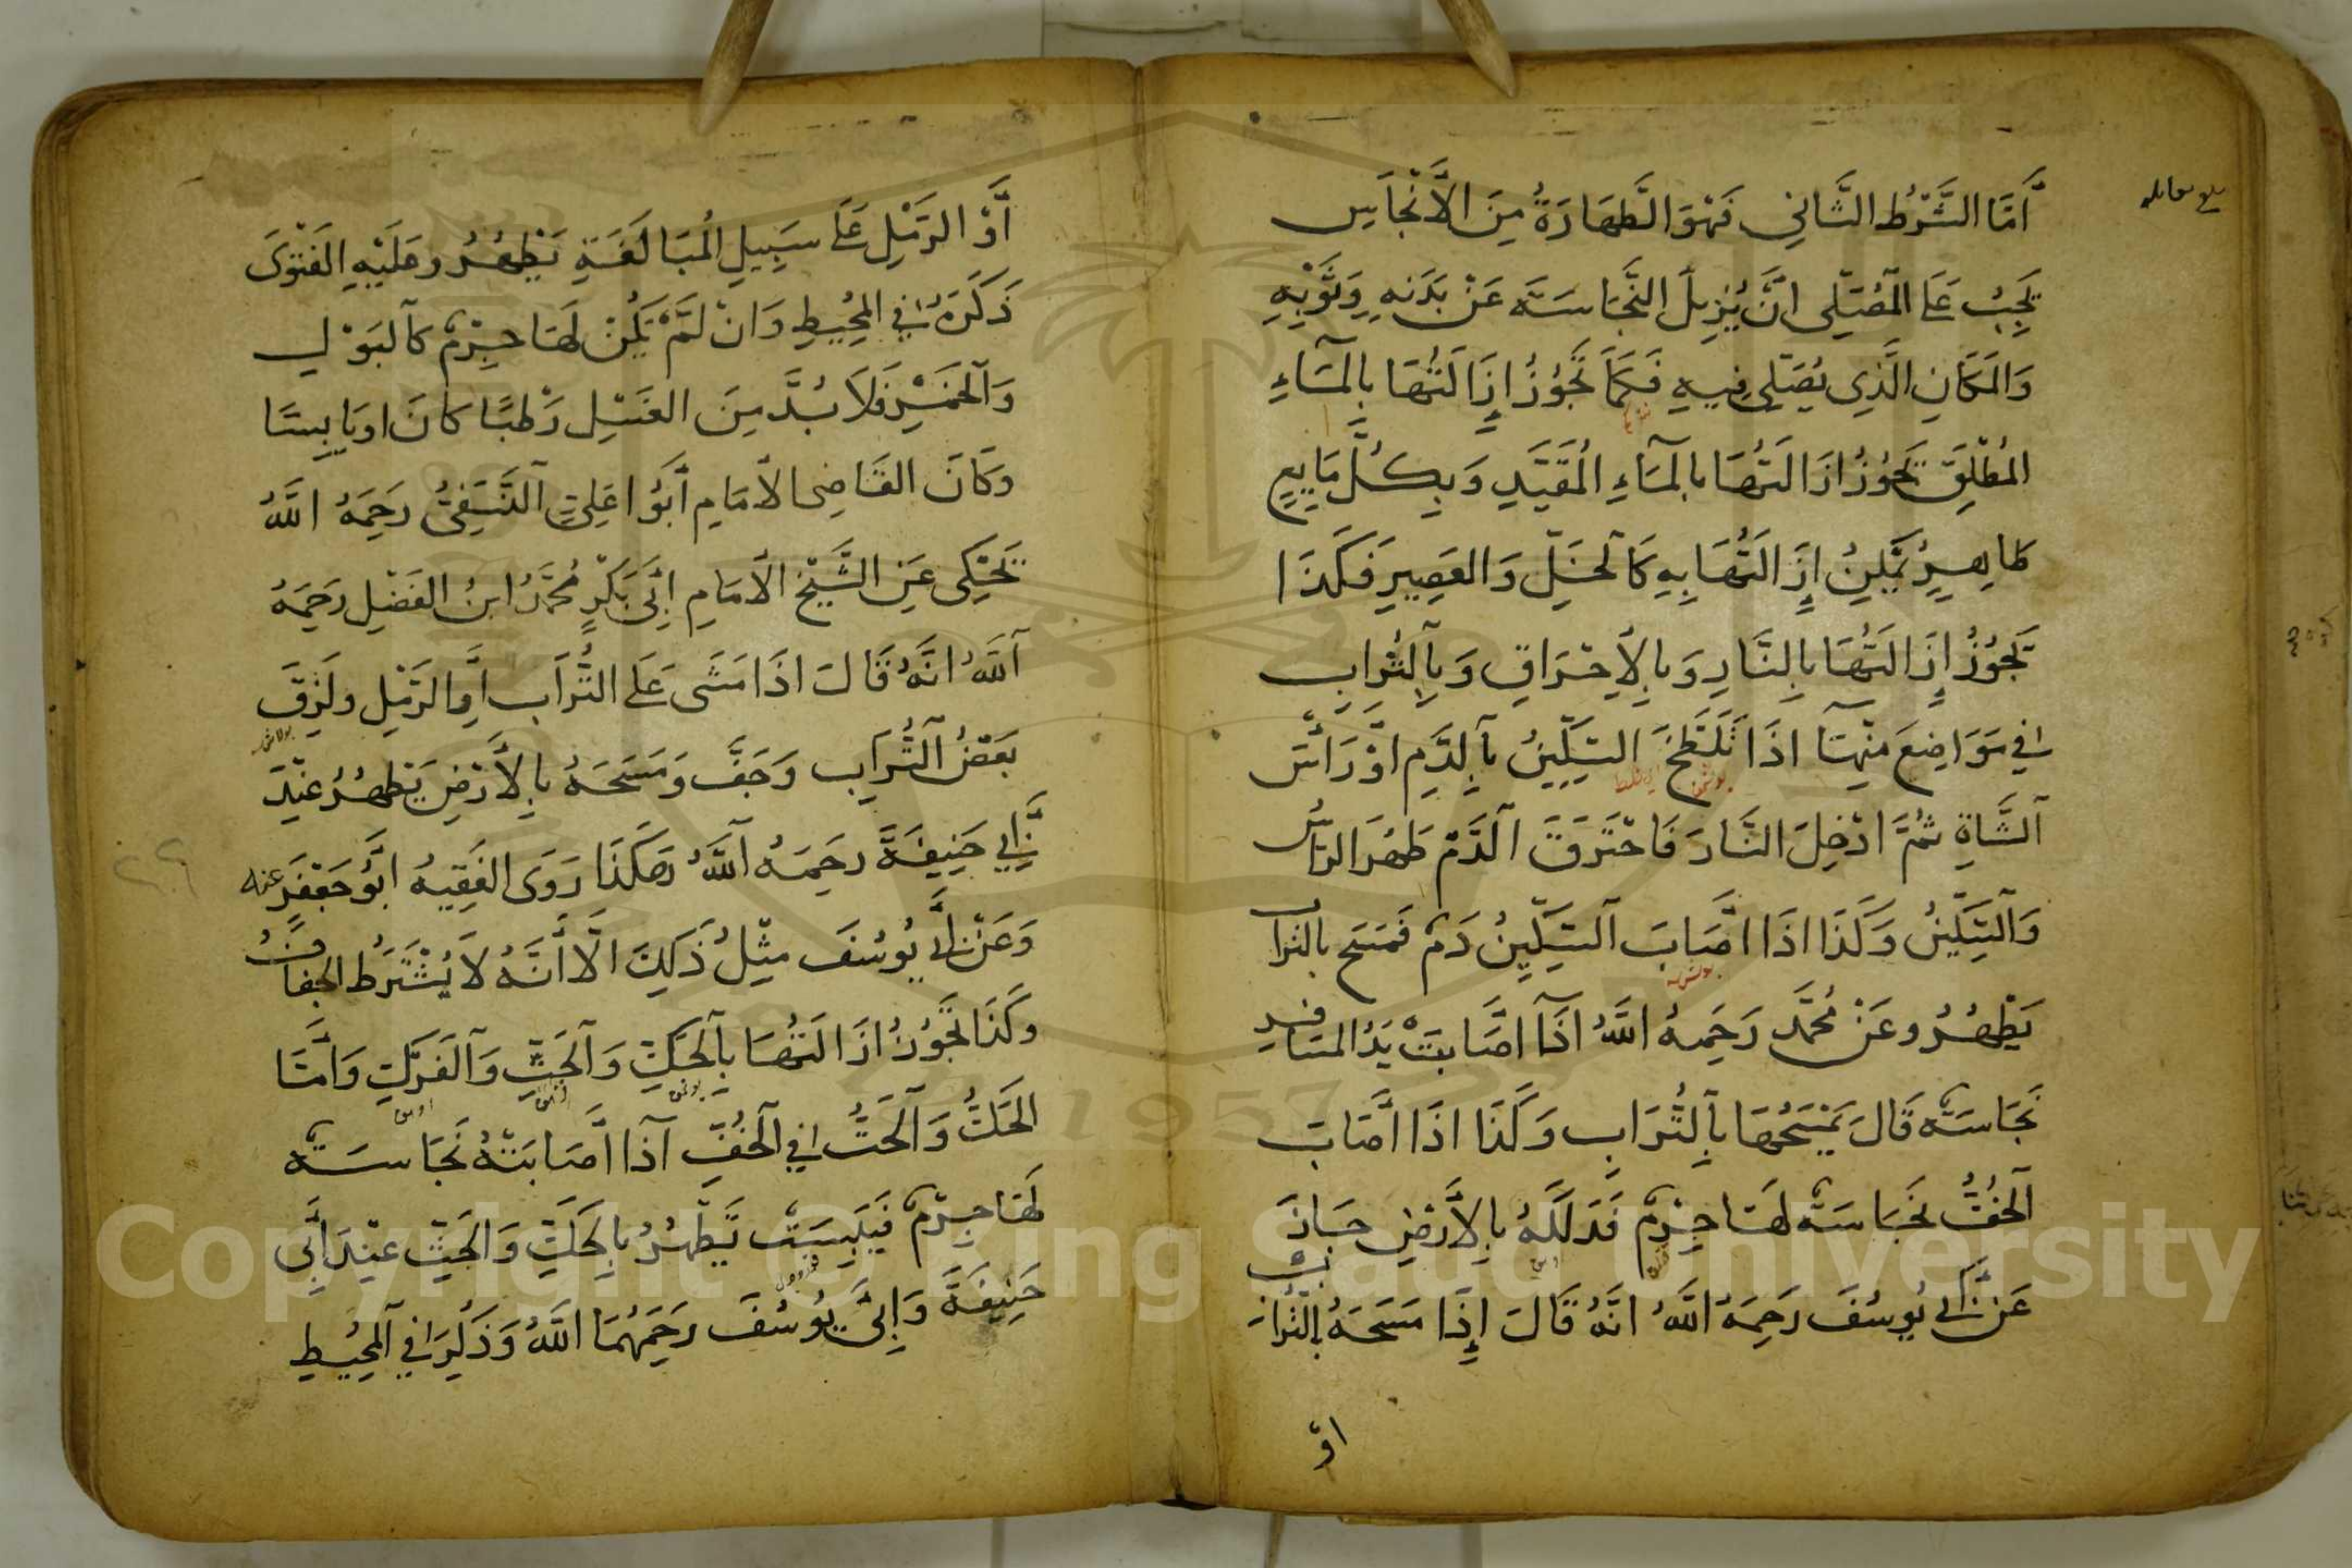 أَمَّا الشَّرْطُ الثَّانِي فَهُوَ الطَّهَارَةُ مِنَ الْأَنْجَاسِ
يَجِبُ عَلَى الْمُصَلِّي اَنْ يُزِيلَ النَّجَاسَةَ عَنْ بَدَنِهِ وَثَوْبِهِ
وَالْمَكَانِ الَّذِي يُصَلِّي فِيهِ فَكَمَا تَجُوزُ إِزَالَتُهَا بِالْمَاءِ
الْمُطْلَقِ تَجُوزُ ازَالَتُهَا بِالْمَاءِ الْمُقَيَّدِ وَبِكُلِّ مَايِعٍ
طَاهِرٍ يُمْكِنُ إِزَالَتُهَا بِهِ كَالْخَلِّ وَالْعَصِيرِ فَكَذَا
تَجُوزُ إِزَالَتُهَا بِالنَّارِ وَبِالْإِحْرَاقِ وَبِالتُّرَابِ
فِي مَوَاضِعَ مِنْهَا اذَا تَلَطَّخَ السِّكِّينُ بِالدَّمِ اَوْ رَأْسُ
الشَّاةِ ثُمَّ ادْخِلَ النَّارَ فَاحْتَرَقَ الدَّمُ طَهُرَ الرَّاْسُ
وَالسِّكِّينُ وَكَذَا اذَا اَصَابَ السِّكِّينُ دَمٌ فَمَسَحَ بالتراب
يَطْهُرُ وعَنْ مُحَمَّدٍ رَحِمَهُ اللَّهُ اذَا اَصَابَتْ يَدُ المسَافِرِ
نَجَاسَةٌ قَالَ يَمْسَحُهَا بِالتُّرَابِ وَكَذَا اذَا اَصَابَ
الْخُفَّ نَجَاسَةٌ لَهَا جِرْمٌ فَدَلَكَهُ بِالْأَرْضِ جَازَ
عَنْ أَبِي يُوسُفَ رَحِمَهُ اللَّهُ انَّهُ قَالَ إِذَا مَسَحَهُ بِالتُّرَابِ
اوْ
أَوْ الرَّمْلِ عَلَى سَبِيلِ الْمُبَالَغَةِ يَطْهُرُ وعَلَيْهِ الْفَتْوَى
ذَكَرَهُ فِي الْمُحِيطِ وَانْ لَمْ يَكُنْ لَهَا جِرْمٌ كَالْبَوْلِ
وَالْخَمْرِ فَلَا بُدَّ مِنَ الْغَسْلِ رَطْبًا كَانَ اوْ يَابِسًا
وَكَانَ الْقَاضِى الْاِمَامِ أَبُوا عَلِيٍّ النَّسَفِيُّ رَحِمَهُ اللَّهُ
يَحْكِى عَنِ الشَّيْخِ الْاِمَامِ أَبِي بَكْرٍ مُحَمَّدُ ابنُ الْفَضْلِ رَحِمَهُ
اللَّهُ انَّهُ قَالَ اذَا مَشَى عَلَى التُّرَاب اَوِ الرَّمْلِ ولَزِقَ
بَعْضُ التُّرَابِ وَجَفَّ وَمَسَحَهُ بِالْأَرْضِ يَطْهُرُ عِنْدَ
أَبِي حَنِيفَةَ رحِمَهُ اللَّهُ وَهَكَذَا رَوَى الْفَقِيهُ اَبُو جَعْفَرَ عنه
وَعَنْ أَبِي يُوسُفَ مِثْلُ ذَلِكَ الَّا أَنَّهُ لَا يُشْتَرَطُ الجفافُ
وكَذَا تَجُوزُ ازَالَتُهَا بِالْحَكِّ وَالْحَتِّ وَالْفَرْكِ وَأَمَّا
الْحَكُّ وَالْحَتُّ فِي الْخُفِّ اذا أَصَابَتْهُ نَجَاسَةٌ
لَهَا جِرْمٌ فَيَبِسَتْ تَطْهُرُ بِالْحَكِّ وَالْحَتِّ عِنْدَ أَبِي
حَنِيفَةَ وَأَبِي يُوسُفَ رَحِمَهُمَا اللَّهُ وَذَكَرَ فِي الْمُحِيطِ
Copyright © King Saud University
1957